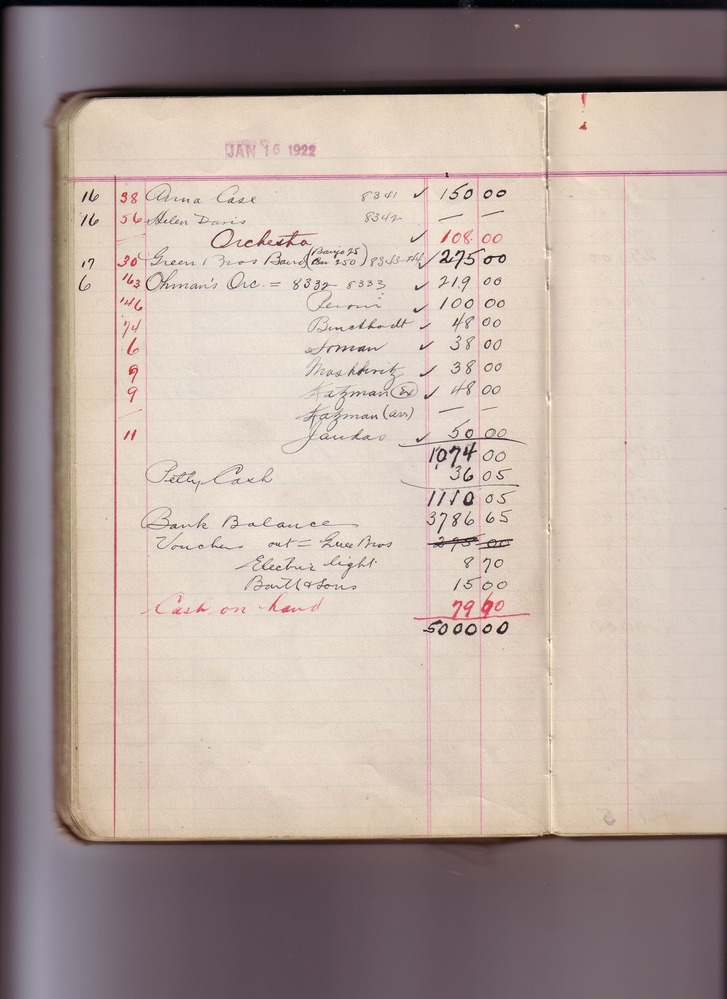 JAN 16 1922
16 38 Anna Case 8341 ✓ 150 00
16 56 Helen Davis 8342 — —
— Orchestra ✓ 108.00
17 30 Green Bros Band (Banjo 25 250) 8343-44 ✓ 275 00
6 163 Ohman's Orc. = 8332 - 8333 ✓ 219 00
146 Peroni ✓ 100 00
74 Burckhardt ✓ 48 00
6 Soman ✓ 38 00
9 ✓ 38 00
9 Katzman ✓ 48 00
— Katzman (arr) — —
11 Jaudas ✓ 50 00
1074 00
Petty Cash 36 05
1110 05
Bank Balance 3786 65
Vouchers out = Gree Bros 275 00
Electric light 8 70
Barth & Sons 15 00
Cash on hand 79 60
5000 00